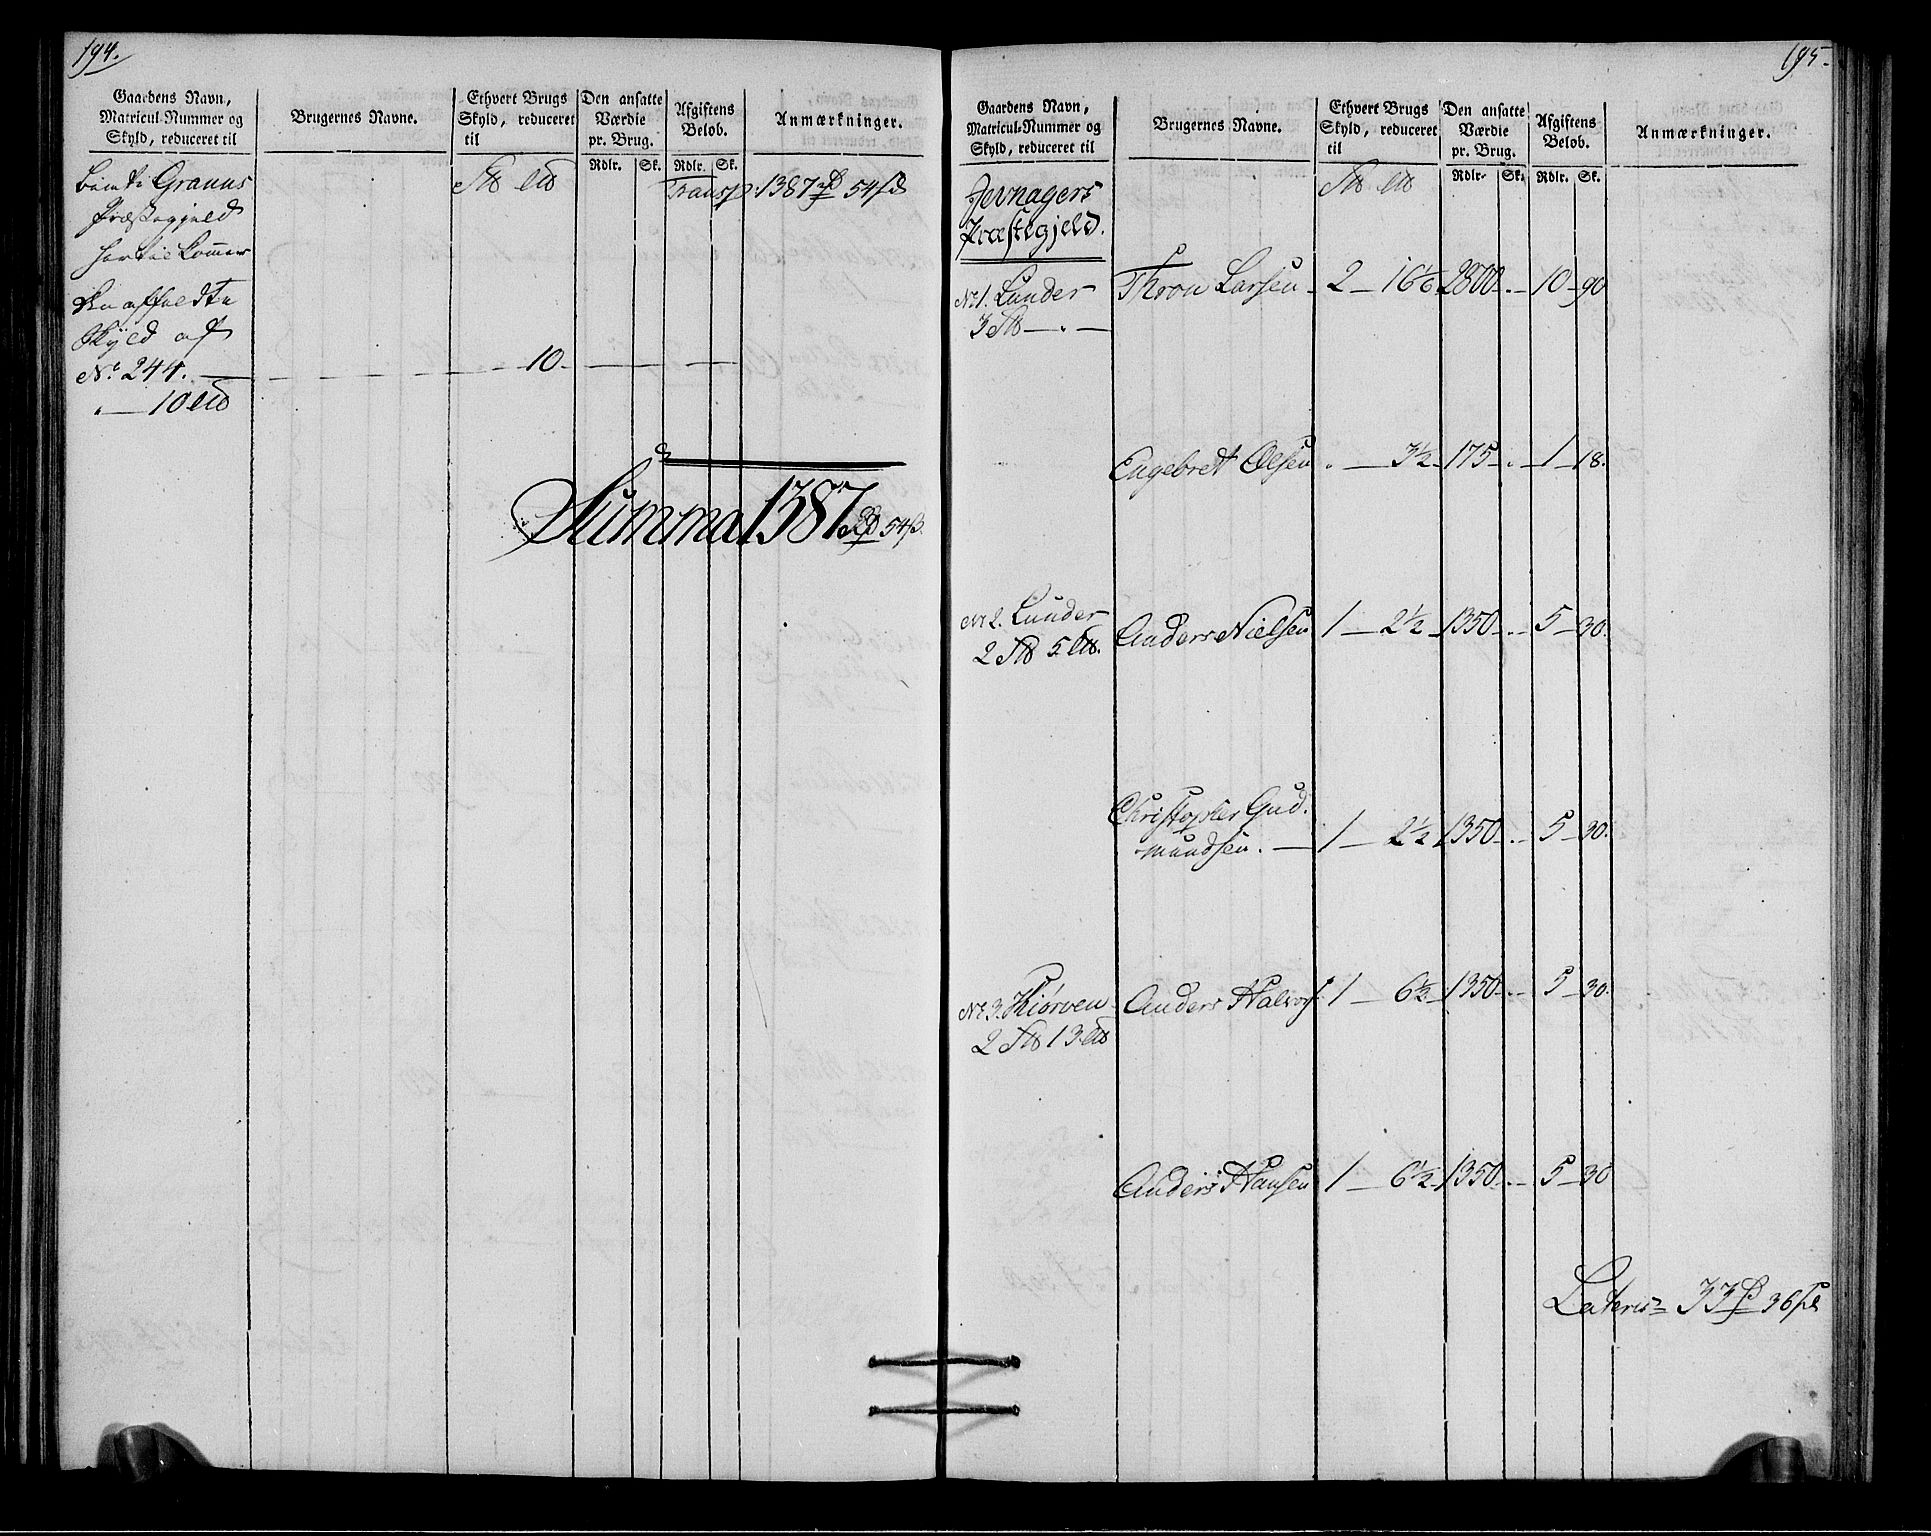 194.
Gaardens Navn,
Matricul-Nummer og
Skyld, reduceret til
Brugernes Navne.
Ethvert Brugs
Skyld, reduceret
til
Den ansatte
Værdie
pr. Brug.
Afgiftens
Beløb.
Anmærkninger.
Rdlr. Sk. Rdlr. Sk.
Granns
Præstegjeld
Transp: 1387 54
hertil kommer
Skyld af
No. 244. 10.
10
Summa 1387 54
195.
Gaardens Navn,
Matricul-Nummer og
Skyld, reduceret til
Brugernes Navne.
Ethvert Brugs
Skyld, reduceret
til
Den ansatte
Værdie
pr. Brug.
Afgiftens
Beløb.
Anmærkninger.
Rdlr. Sk. Rdlr. Sk.
Jevnagers
Præstegjeld.
No 1. Lunder Thron Larsen 2 16½ 2800 10 90
3
Engebrett Olsen 3½ 175 1 18.
No 2. Lunder Anders Nielsen 1 2½ 1350 5 30.
2 5
Christopher Gud-
mundsen. 1 2½ 1350 5 30.
No 3. Kiørven Anders Halvors: 1 6½ 1350 5 30.
2 13
Anders Hansen 1 6½ 1350 5 30
Lateris 33 36